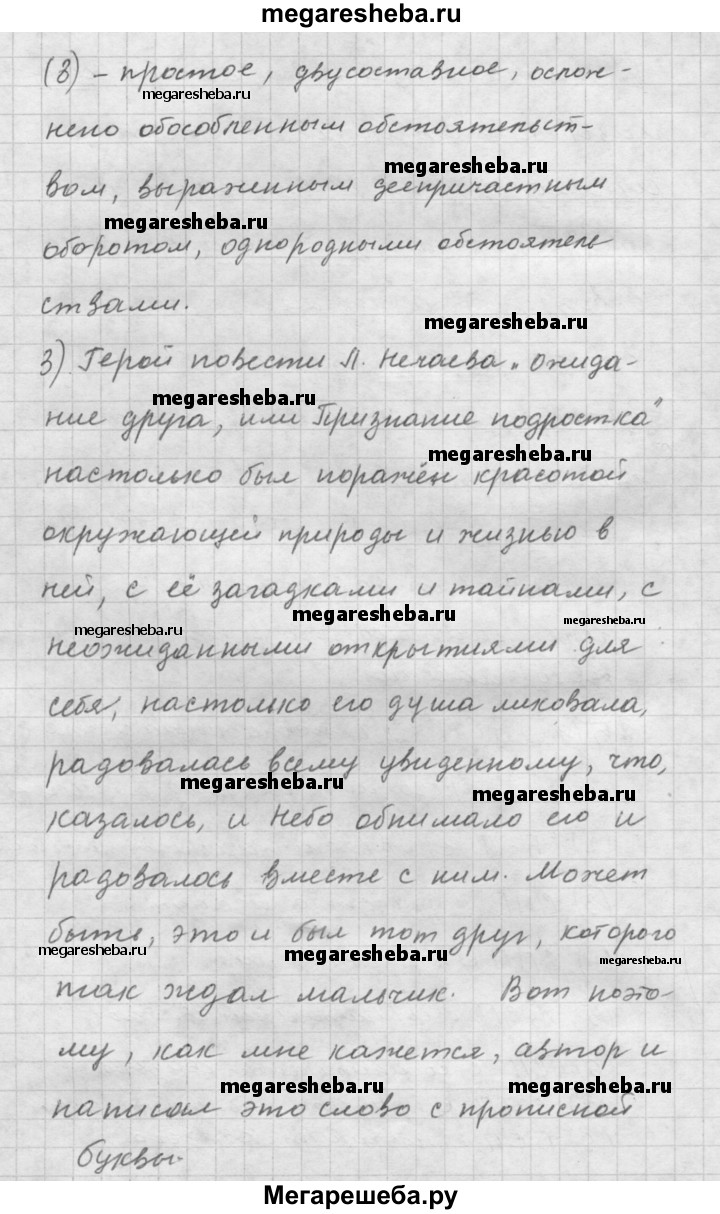 megaresheba.ru
(3) – простое, двусоставное, ослож-
megaresheba.ru
нено обособленным обстоятельст-
megaresheba.ru
вом, выраженным деепричастным
megaresheba.ru
оборотом, однородными обстоятель
ствами.
megaresheba.ru
3) Герой повести П. Нечаева „Ожида-
megaresheba.ru
ние друга, или Признание подростка"
megaresheba.ru
настолько был поражён красотой
окружающей природы и жизнью в
ней, с её загадками и тайнами, с
megaresheba.ru
megaresheba.ru
megaresheba.ru
неожиданными открытиями для
себя, настолько его душа ликовала,
радовалась всему увиденному, что,
megaresheba.ru
megaresheba.ru
казалось, и Небо обнимало его и
радовалось вместе с ним. Может
быть, это и был тот друг, которого
megaresheba.ru
megaresheba.ru
megaresheba.ru
так ждал мальчик. Вот поэто-
му, как мне кажется, автор и
megaresheba.ru
megaresheba.ru
написал это слово с прописной
буквы.
Мегарешеба.ру